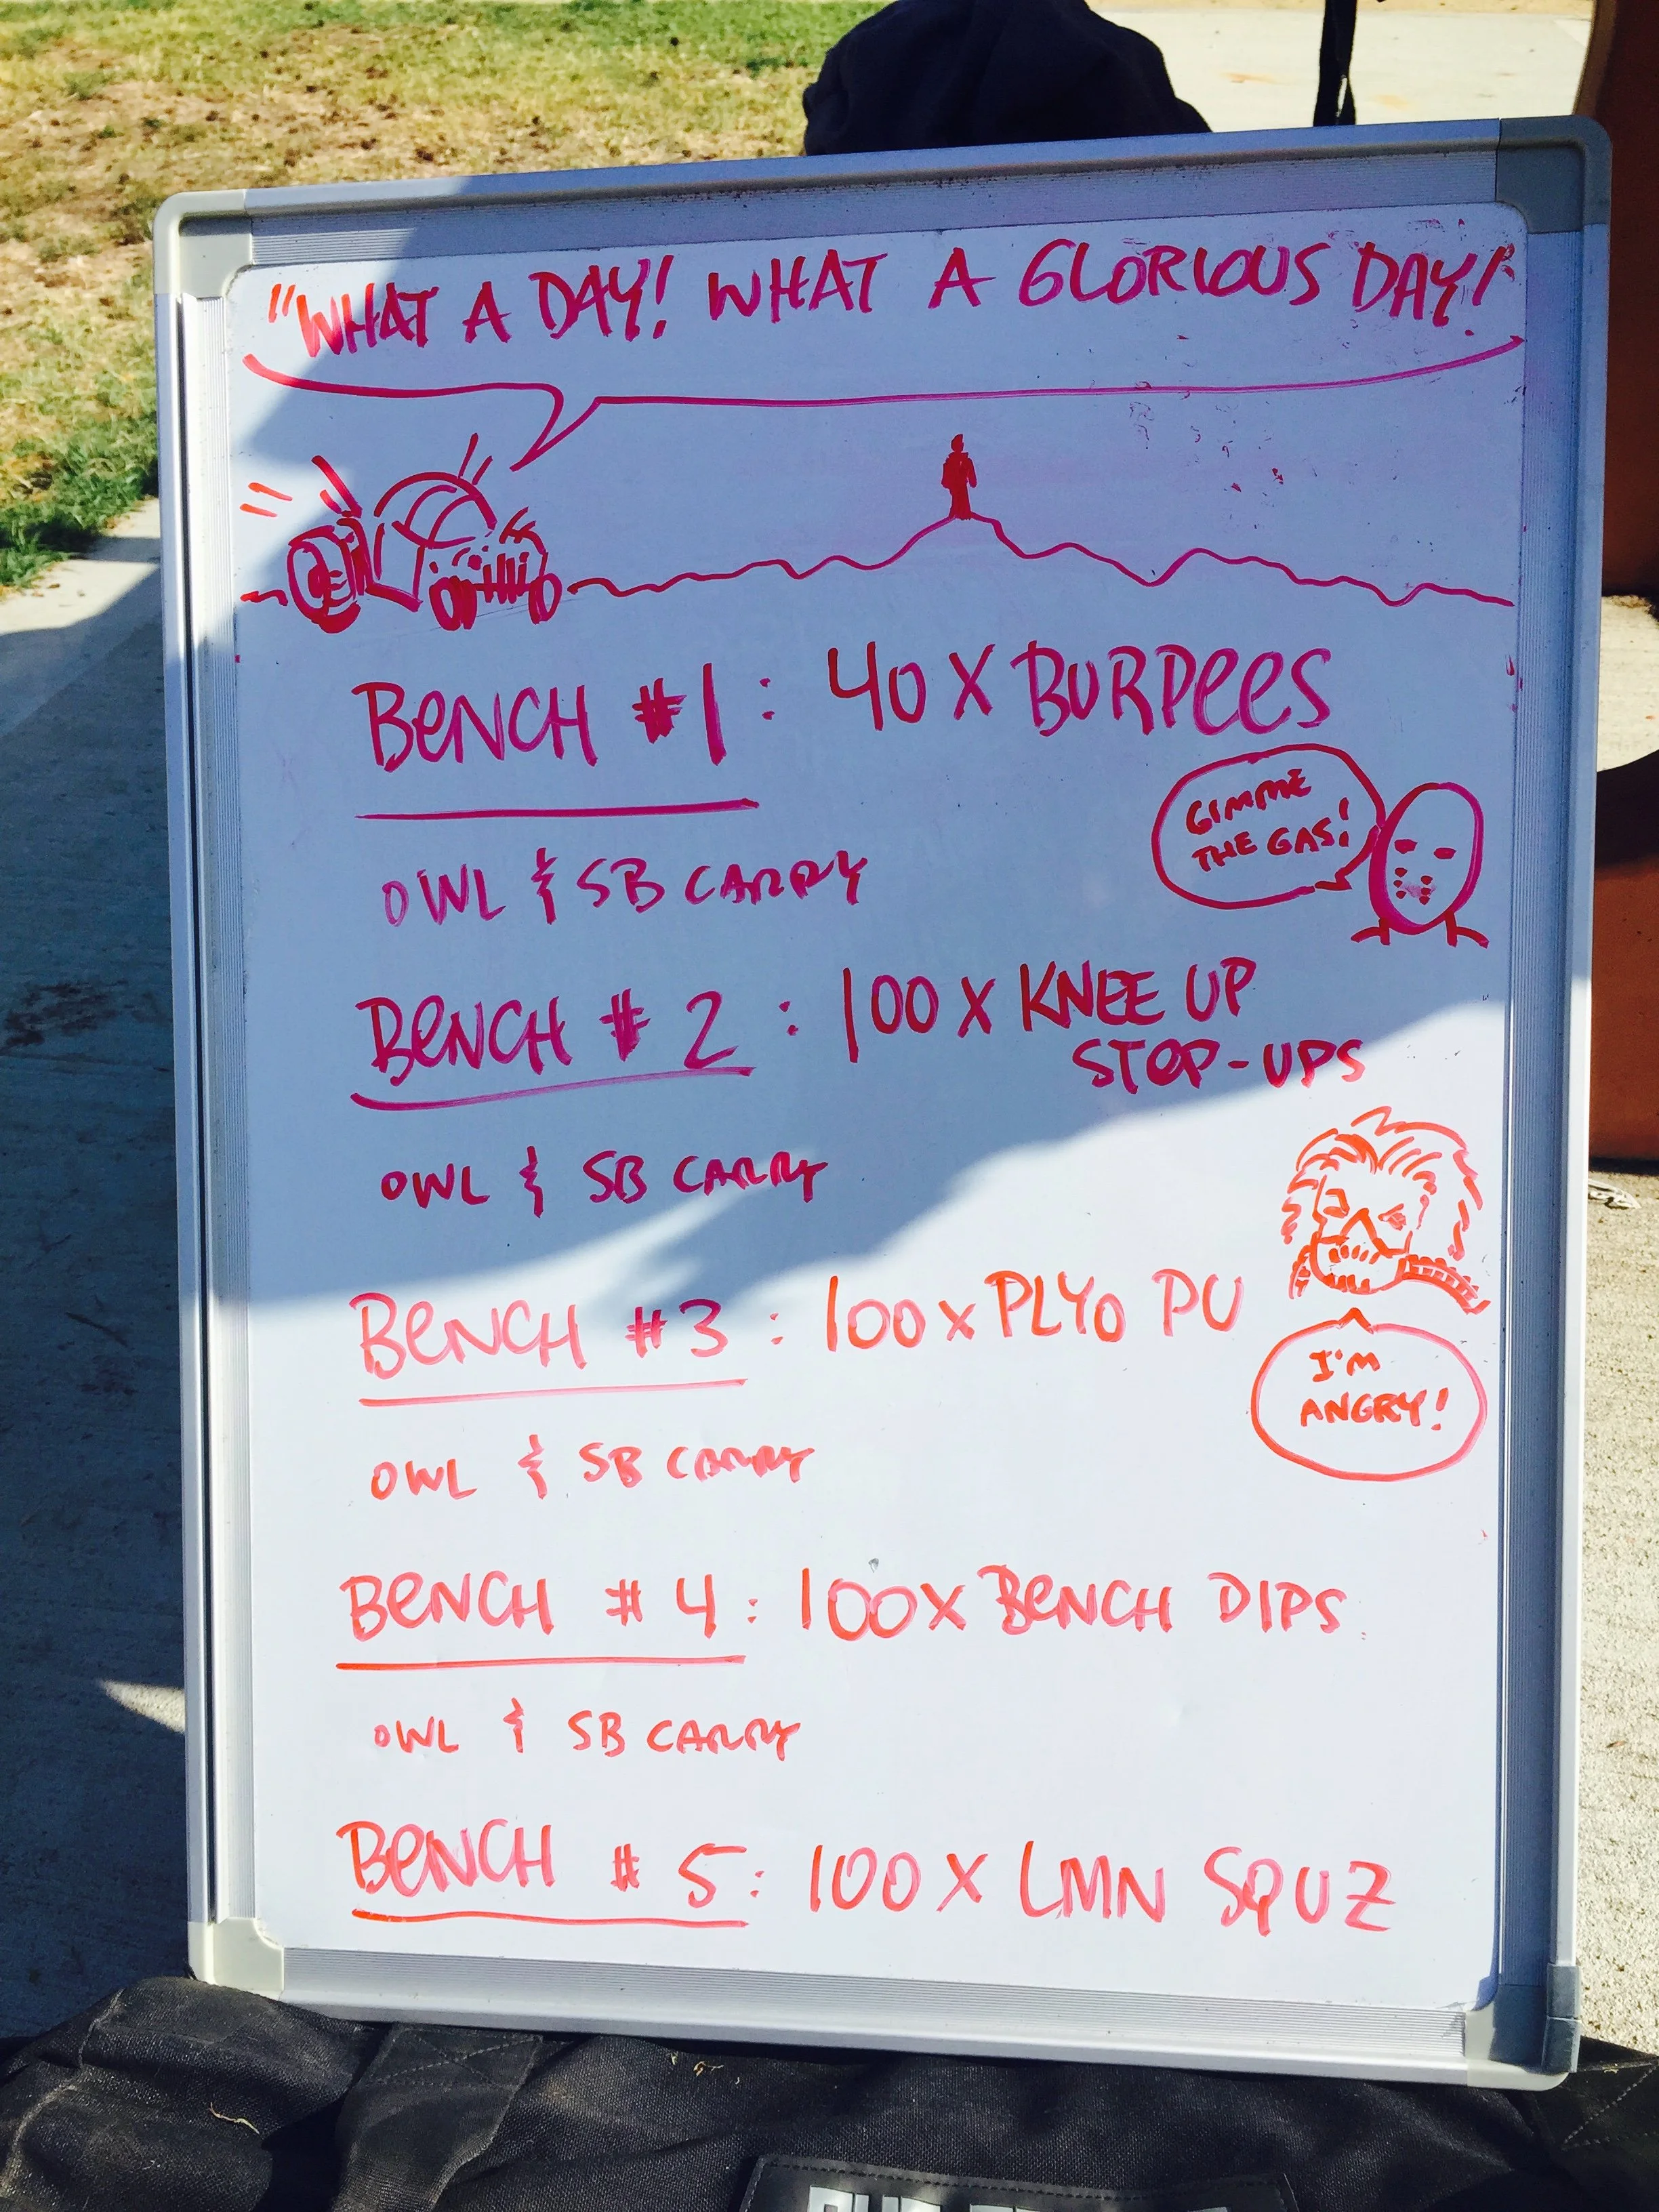 "WHAT A DAY! WHAT A GLORIOUS DAY!
BENCH #1: 40 X BURPEES
GIMME
THE GAS!
OWL & SB CARRY
BENCH #2: 100 X KNEE UP
STEP-UPS
OWL & SB CARRY
BENCH #3: 100 X PLYO PU
I'M
ANGRY!
OWL & SB CARRY
BENCH #4: 100 X BENCH DIPS
OWL & SB CARRY
BENCH #5: 100 X LMN SQUZ